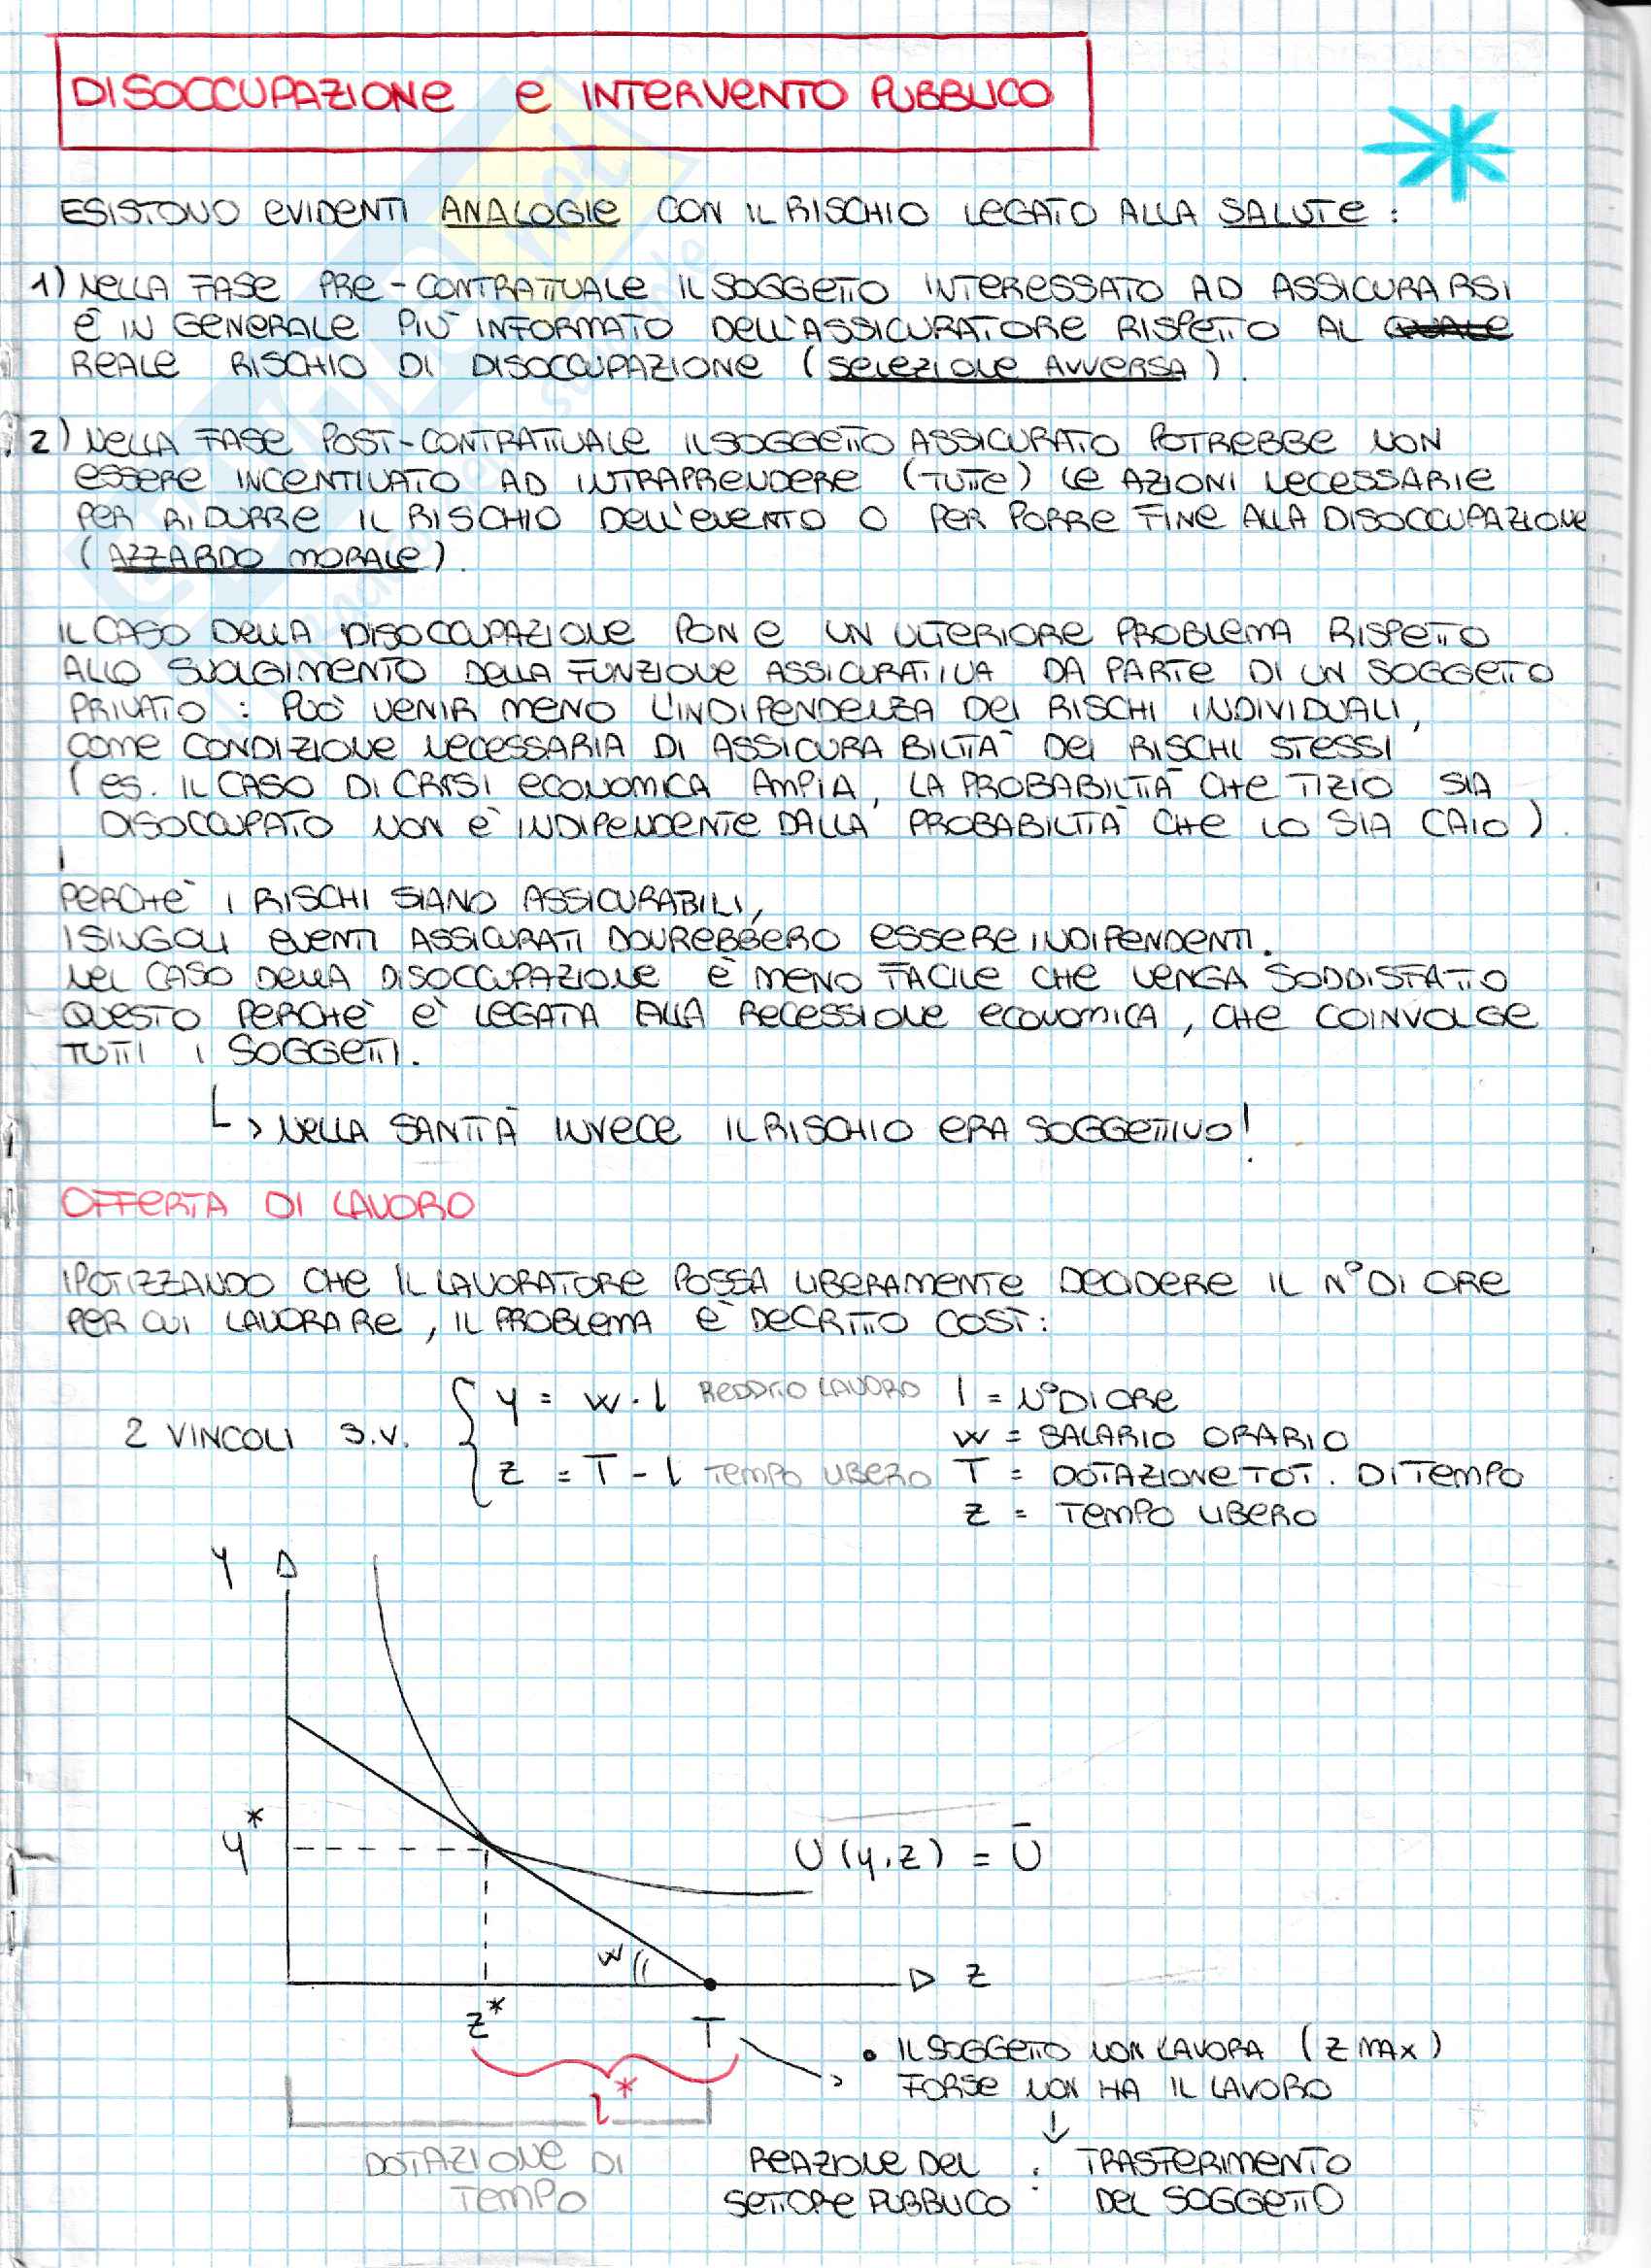 DISOCCUPAZIONE e INTERVENTO PUBBLICO
ESISTONO EVIDENTI ANALOGIE CON IL RISCHIO LEGATO ALLA SALUTE :
1) NELLA FASE PRE-CONTRATTUALE IL SOGGETTO INTERESSATO AD ASSICURARSI
È IN GENERALE PIÙ INFORMATO DELL'ASSICURATORE RISPETTO AL
REALE RISCHIO DI DISOCCUPAZIONE (SELEZIONE AVVERSA).
2) NELLA FASE POST-CONTRATTUALE IL SOGGETTO ASSICURATO POTREBBE NON
ESSERE INCENTIVATO AD INTRAPRENDERE (TUTTE) LE AZIONI NECESSARIE
PER RIDURRE IL RISCHIO DELL'EVENTO O PER PORRE FINE ALLA DISOCCUPAZIONE
(AZZARDO MORALE).
IL CASO DELLA DISOCCUPAZIONE PONE UN ULTERIORE PROBLEMA RISPETTO
ALLO SVOLGIMENTO DELLA FUNZIONE ASSICURATIVA DA PARTE DI UN SOGGETTO
PRIVATO : PUÒ VENIR MENO L'INDIPENDENZA DEI RISCHI INDIVIDUALI,
COME CONDIZIONE NECESSARIA DI ASSICURABILITÀ DEI RISCHI STESSI
(es. IL CASO DI CRISI ECONOMICA AMPIA, LA PROBABILITÀ CHE TIZIO SIA
DISOCCUPATO NON È INDIPENDENTE DALLA PROBABILITÀ CHE LO SIA CAIO).
PERCHÈ I RISCHI SIANO ASSICURABILI,
I SINGOLI EVENTI ASSICURATI DOVREBBERO ESSERE INDIPENDENTI.
NEL CASO DELLA DISOCCUPAZIONE È MENO FACILE CHE VENGA SODDISFATTO
QUESTO PERCHÈ È LEGATA ALLA RECESSIONE ECONOMICA, CHE COINVOLGE
TUTTI I SOGGETTI.
↳ NELLA SANITÀ INVECE IL RISCHIO ERA SOGGETTIVO!
OFFERTA DI LAVORO
IPOTIZZANDO CHE IL LAVORATORE POSSA LIBERAMENTE DECIDERE IL N° DI ORE
PER CUI LAVORARE, IL PROBLEMA È DECRITTO COSÌ:
2 VINCOLI S.V.
y = w · l REDDITO LAVORO
z = T - l TEMPO LIBERO
l = N° DI ORE
w = SALARIO ORARIO
T = DOTAZIONE TOT. DI TEMPO
z = TEMPO LIBERO
Y
y*
U(y,z) = Ū
w
z
z*
T
l*
• IL SOGGETTO NON LAVORA (Z MAX)
FORSE NON HA IL LAVORO
↓
DOTAZIONE DI
TEMPO
REAZIONE DEL : TRASFERIMENTO
SETTORE PUBBLICO DEL SOGGETTO